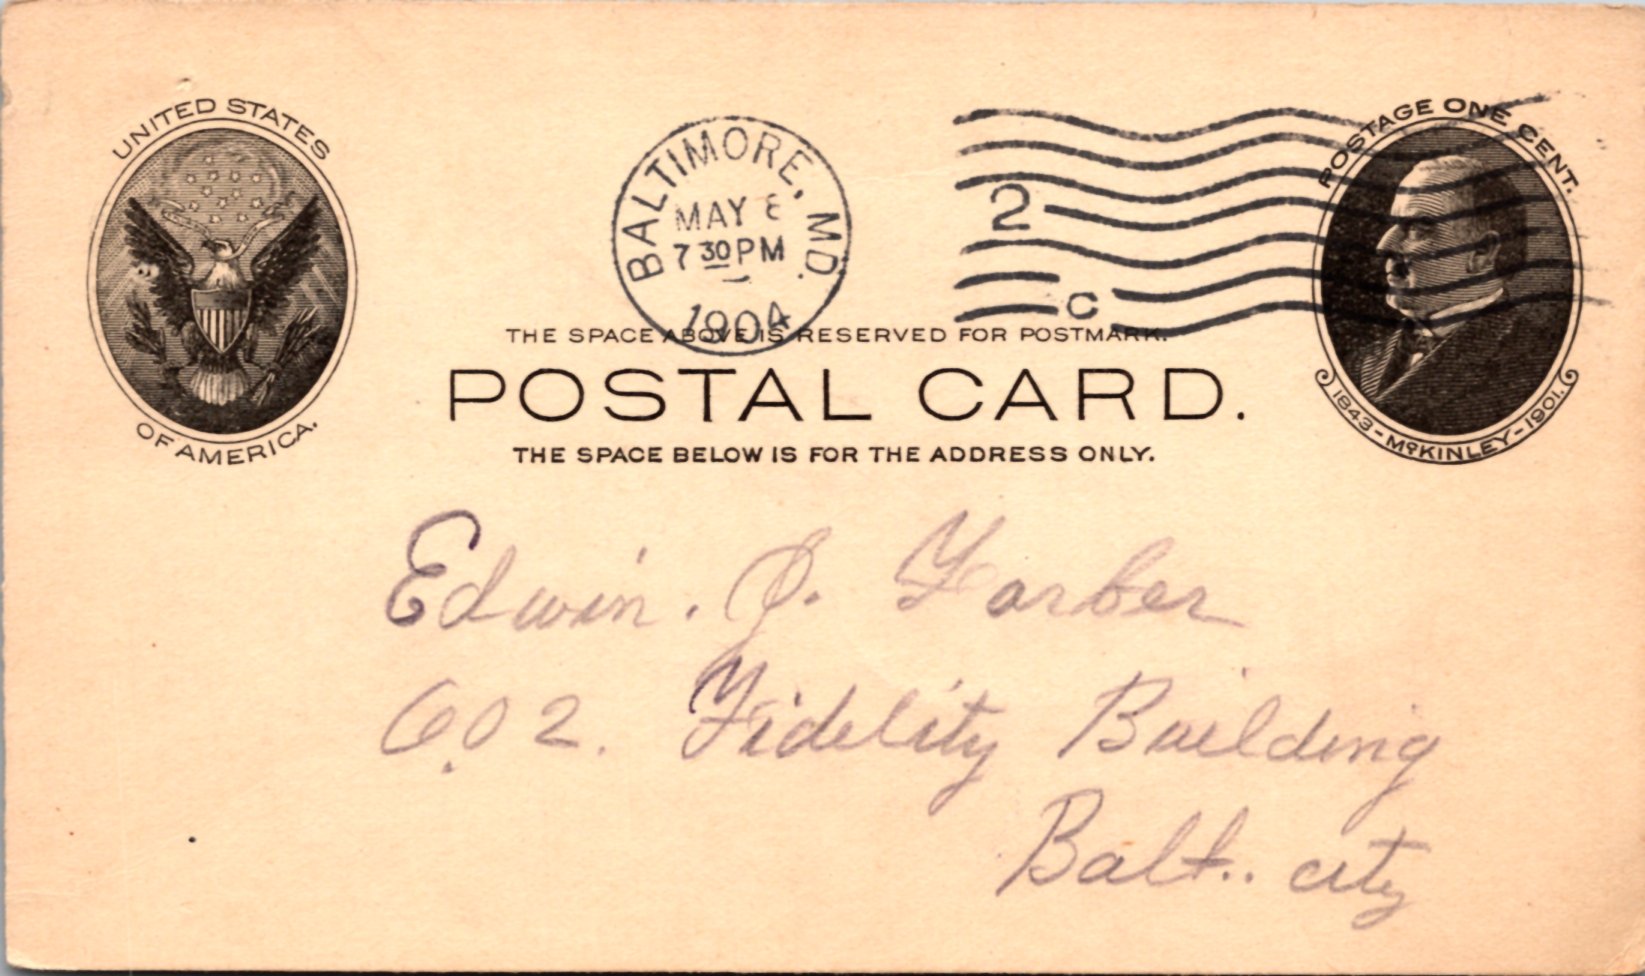 UNITED STATES
OF AMERICA.
BALTIMORE, MD.
MAY
7 30 PM
1904
2
C
POSTAGE ONE CENT.
1843-McKINLEY-1901.
THE SPACE ABOVE IS RESERVED FOR POSTMARK.
POSTAL CARD.
THE SPACE BELOW IS FOR THE ADDRESS ONLY.
Edwin. J. Farber
602. Fidelity Building
Balt.. city